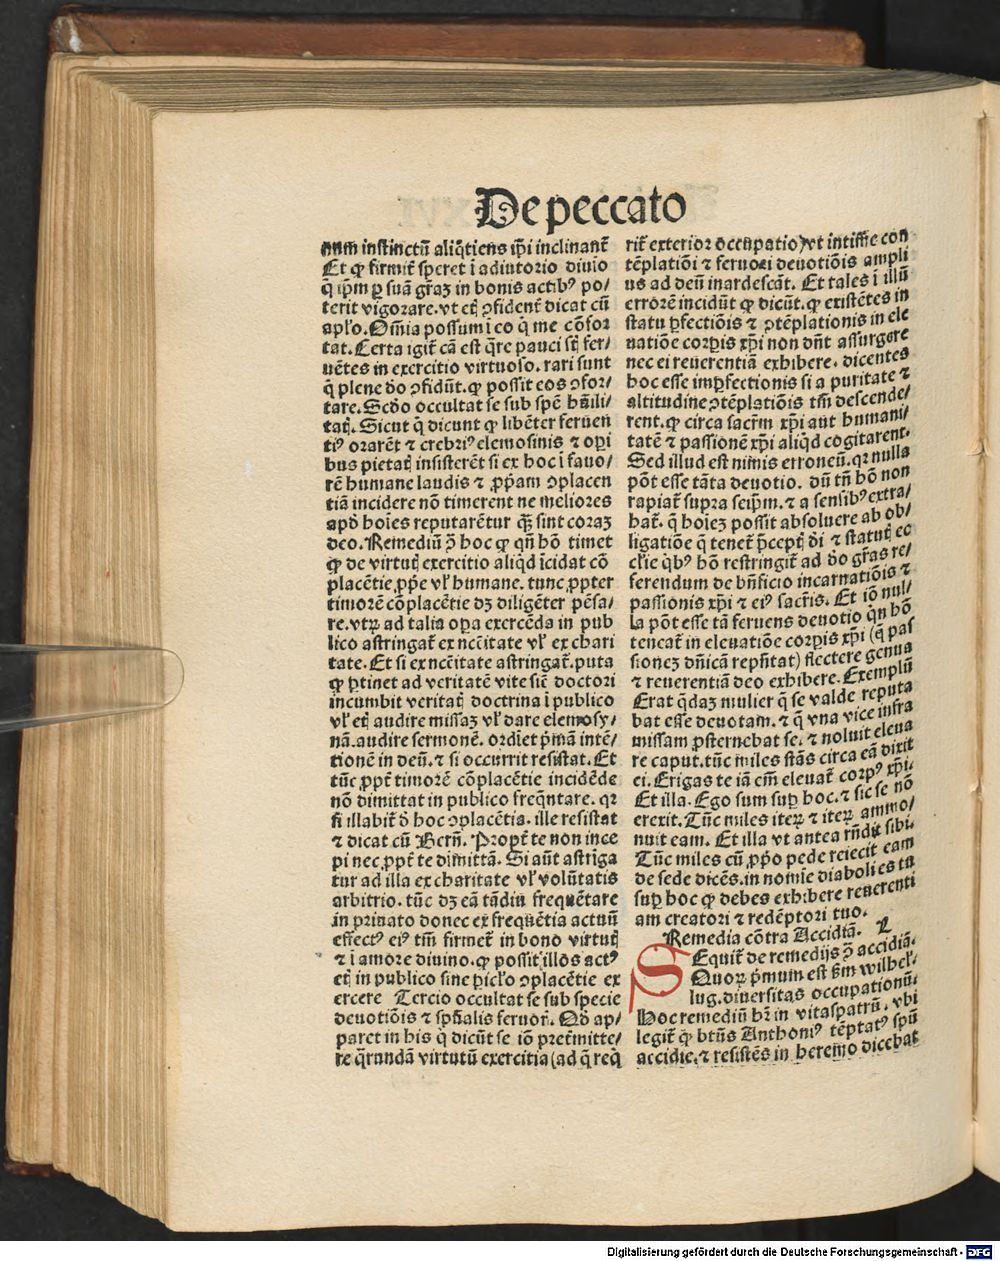 De peccato
num instinctū aliq̄tiens ip̄i inclinant̄
Et ꝙ firmit̄ speret ī adiutorio diuīo
q̄ ip̄m ꝑ suā gr̄aꝫ in bonis actibꝰ po/
terit vigorare. vt etꝫ ꝯfident̄ dicat cū
apl̄o. Om̄ia possum ī eo q̇ me cōfor
tat. Certa igit̄ cā est q̄re pauci sṫ fer/
uētes in exercitio virtuoso. rari sunt
q̇ plene d̄o ꝯfidūt. ꝙ possit eos ꝯfor/
tare. Scd̄o occultat se sub spē hūili/
tatꝭ. Sicut q̇ dicunt ꝙ libēter feruen
tiꝰ orarēt ⁊ crebriꝰ elemosinis ⁊ oꝑi
bus pietatꝭ insisterēt si ex hoc ī fauo/
rē humane laudis ⁊ ꝓpriam ꝯplacen
tiā incidere nō timerent ne meliores
apd̄ hoīes reputarētur qꝫ sint coraꝫ
deo. Remediū ꝯ̄ hoc ꝙ qn̄ hō timet
ꝙ de virtutꝭ exercitio aliqd̄ īcidat cō
placētie ꝓp̄e vl̓ humane. tunc ꝓpter
timorē cōplacētie dꝫ diligēter pēsa/
re. vtꝝ ad talia oꝑa exercēda in pub
lico astringat̄ ex nēcitate vl̓ ex chari
tate. Et si ex nēcitate astringat̄. puta
ꝙ ꝑtinet ad veritatē vite sic̄ doctori
incumbit veritatꝭ doctrina ī publico
vl̓ etꝫ audire missaꝫ vl̓ dare elemosy/
nā. audire sermonē. ordīet p̄mā intē/
tionē in deū. ⁊ si occurrit resistat. Et
tūc ꝓpt̄ timorē cōplacētie incidēde
nō dimittat in publico freq̄ntare. qꝛ
si illabit̄ d̄ hoc ꝯplacētia. ille resistat
⁊ dicat cū Bern̄. Propt̄ te non ince
pi nec ꝓpt̄ te dimittā. Si aūt astriga
tur ad illa ex charitate vl̓ volūtatis
arbitrio. tūc dꝫ eā tādiu frequētare
in priuato donec ex frequētia actuū
effectꝰ eiꝰ tm̄ firmet̄ in bono virtutꝭ
⁊ ī amore diuino. ꝙ possit illos actꝰ
etꝫ in publico sine ꝑicl̓o ꝯplacētie ex
ercere Tercio occultat se sub specie
deuotiōis ⁊ sp̄nalis feruor̄. Qd̄ ap/
paret in his q̇ dicūt se iō pret̄mitte/
re q̄rundā virtutū exercitia (ad q̄ req̇
rit̄ exterior occupatio) vt intime con
tēplatiōi ⁊ feruori deuotiōis ampli
us ad deū inardescāt. Et tales ī illū
errorē incidūt ꝙ dicūt. ꝙ existētes in
statu ꝑfectiōis ⁊ ꝯtēplationis in ele
uatiōe corꝑis xp̄i non dn̄t assurgere
nec ei reuerentiā exhibere. dicentes
hoc esse imꝑfectionis si a puritate ⁊
altitudine ꝯtēplatiōis tm̄ descende/
rent. ꝙ circa sacr̄m xp̄i aut humani/
tatē ⁊ passionē xp̄i aliqd̄ cogitarent.
Sed illud est nimis erroneū. qꝛ nulla
pōt esse tāta deuotio. dū tn̄ hō non
rapiat̄ supra seip̄m. ⁊ a sensibꝰ extra/
hat̄. q̄ hoīeꝫ possit absoluere ab ob/
ligatiōe q̄ tenet̄ p̄ceptꝭ d̄i ⁊ statutꝭ ec
cl̓ie qͥbꝰ hō restringit̄ ad d̄o gr̄as re/
ferendum de bn̄ficio incarnatiōis ⁊
passionis xp̄i ⁊ eiꝰ sacr̄is. Et iō nul/
la pōt esse tā feruens deuotio qn̄ hō
teneat̄ in eleuatiōe corꝑis xp̄i (q̄ pas
sioneꝫ dn̄icā repn̄tat) flectere genua
⁊ reuerentiā deo exhibere. Exemplū
Erat q̄daꝫ mulier q̄ se valde reputa
bat esse deuotam. ⁊ q̄ vna vice infra
missam ꝓsternebat se. ⁊ noluit eleua
re caput. tūc miles stās circa eā dixit
ei. Erigas te iā cm̄ eleuat̄ corpꝰ xp̄i.
Et illa. Ego sum suꝑ hoc. ⁊ sic se nō
erexit. Tūc miles iteꝝ ⁊ iteꝝ ammo/
nuit eam. Et illa vt antea rn̄dit sibi.
Tūc miles cū ꝓp̄o pede reiecit eam
de sede dicēs. in nomīe diaboli es tu
suꝑ hoc ꝙ debes exhibere reuerenti
am creatori ⁊ redēptori tuo.
Remedia cōtra Accidiā. L
SEquit̄ de remedijs ꝯ̄ accidiā.
Quoꝝ p̄mum est scd̄m wilhel̓.
lug. diuersitas occupationū.
Hoc remediū hr̄ in vitaspatrū. vbi
legit̄ ꝙ btūs Anthoniꝰ tēptatꝰ spū
accidie. ⁊ resistēs in heremo dicebat
Digitalisierung gefördert durch die Deutsche Forschungsgemeinschaft - DFG